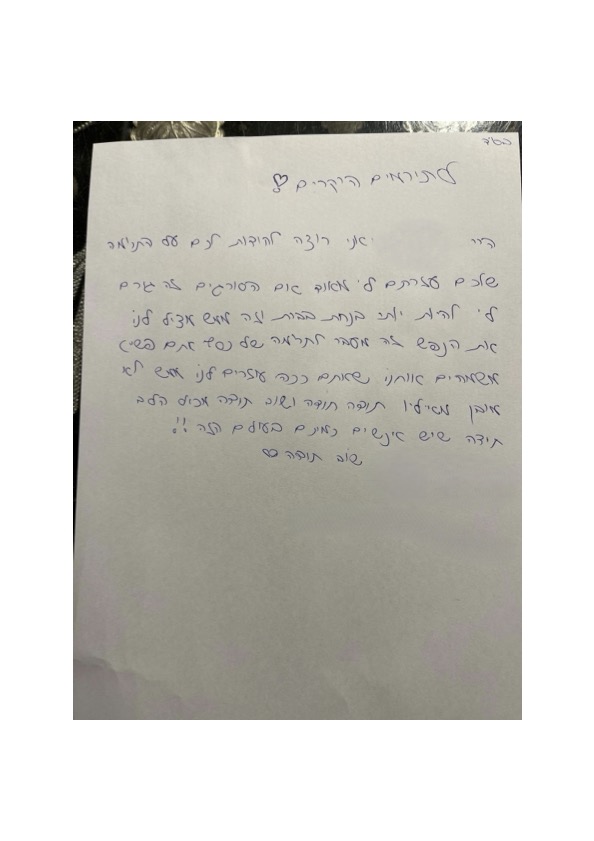 בס"ד
לתורמים היקרים
היי אני רוצה להודות לכם על התרומה
שלכם עזרתם לי מאוד אום הסורגים זה גרם
לי להיות יותר בנחת בבית וזה ממש מציל לנו
את הנפש זה מעבר לתרומה של כסף אתם פשוט
משמחים אותנו שאתם ככה עוזרים לנו ממש לא
מובן מאיליו תודה תודה ושוב תודה מכל הלב
תודה שיש אנשים כמוכם בעולם הזה !!
שוב תודה